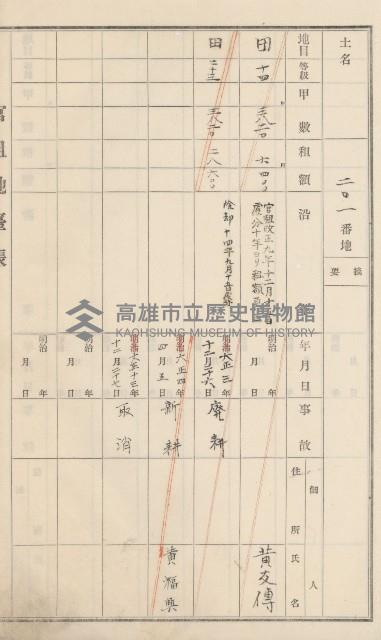 土名
二〇一番地
摘要
地目 等級 甲數 租額 沿
年月日 事故 佃人 住所 氏名
田 十四
官租改正九年十二月
處分十年ヨリ租額
明治 年 月 日
黃友傳
田 二十三
除却 十四年九月十
明治大正三年十二月二十六日 廢耕
明治大正四年四月五日 新耕 黃福興
明治大正十三年十二月二十七日 取消
明治 年 月 日
明治 年 月 日
官租地臺帳
高雄市立歷史博物館
KAOHSIUNG MUSEUM OF HISTORY